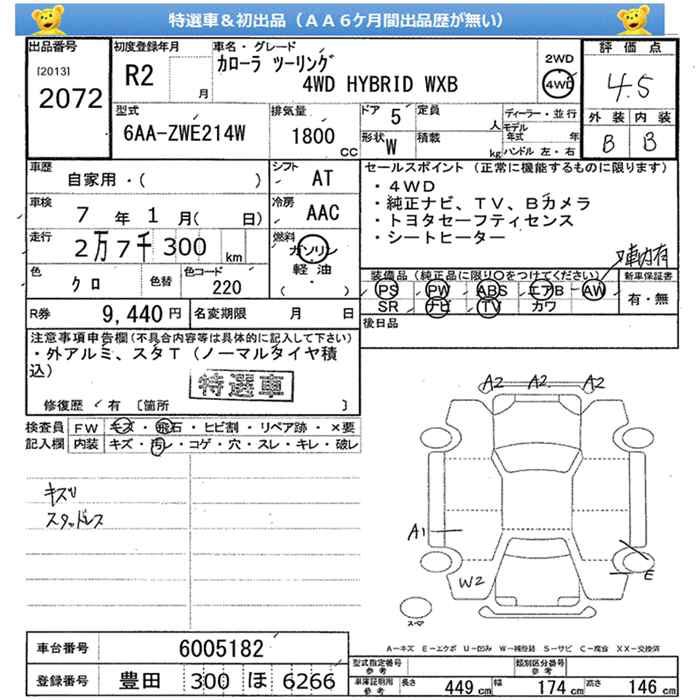 特選車＆初出品（ＡＡ６ケ月間出品歴が無い）
出品番号
[2013]
2072
初度登録年月
R2
月
車名・グレード
カローラ ツーリング
4WD HYBRID WXB
2WD
4WD
評価点
4.5
外装 内装
B B
型式
6AA-ZWE214W
排気量
1800
CC
ドア 5
定員
人
形状 W
積載
kg
ディーラー・並行
モデル年式 年
ハンドル 左・右
車歴
自家用・( )
シフト
AT
車検
7 年 1 月( 日)
冷房
AAC
走行
2万7千300 km
燃料
ガソリン
軽油
( )
色
クロ
色替
色コード
220
R券
9,440円
名変期限 月 日
セールスポイント（正常に機能するものに限ります）
・4WD
・純正ナビ、TV、Bカメラ
・トヨタセーフティセンス
・シートヒーター
車内有
装備品（純正品に限り○をつけてください）
PS PW ABS エアB AW
SR ナビ TV カワ
新車保証書
有・無
後日品
注意事項申告欄(不具合内容等は具体的に記入して下さい)
・外アルミ、スタT（ノーマルタイヤ積
込）
特選車
修復歴 有 [箇所 ]
検査員 FW キズ・飛石・ヒビ割・リペア跡・×要
記入欄 内装 キズ・汚レ・コゲ・穴・スレ・キレ・破レ
キズU
スタッドレス
A2 A2 A2
A1
W2
E
スペア
A－キズ E－エクボ U－凹み W－補修跡 S－サビ C－腐食 XX－交換済
車台番号
6005182
登録番号
豊田 300 ほ 6266
型式指定番号
参考
類別区分番号
参考
車庫証明用
参考
長さ 449 cm
幅 174 cm
高さ 146 cm